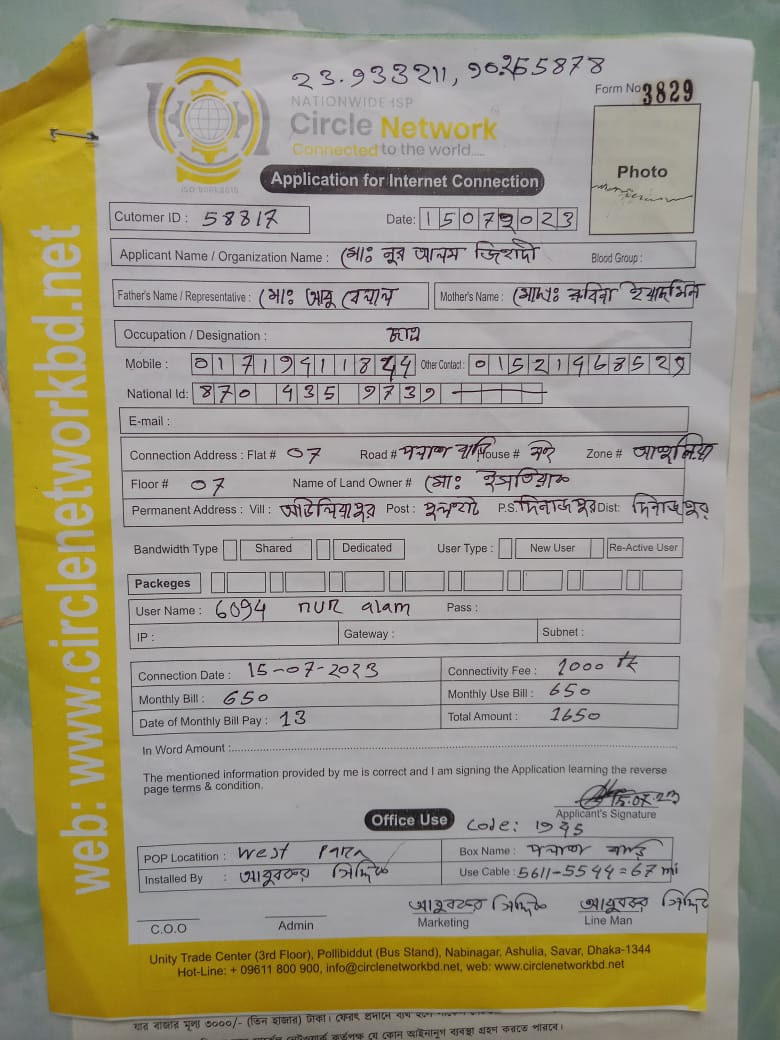 23.933211, 90.265878
NATIONWIDE ISP
Circle Network
Connected to the world.....
ISO 9001:2015
Form No 3829
Photo
Application for Internet Connection
Cutomer ID : 58817 Date: 15072023
Applicant Name / Organization Name : মোঃ নুর আলম জিহাদী Blood Group :
Father's Name / Representative : মোঃ আবু বেলাল Mother's Name : মোছাঃ রুবিনা ইয়াসমিন
Occupation / Designation :
Mobile : 01719411844 Other Contact : 01521468529
National Id: 870 435 9739
E-mail :
Connection Address : Flat # 07 Road # পলাশ বাড়ি House # নাই Zone # আশুলিয়া
Floor # 07 Name of Land Owner # মোঃ ইসতিয়াক
Permanent Address : Vill : Post : P.S. দিনাজপুর Dist: দিনাজপুর
Bandwidth Type Shared Dedicated User Type : New User Re-Active User
Packeges
User Name : 6094 nur alam Pass :
IP : Gateway : Subnet :
Connection Date : 15-07-2023 Connectivity Fee : 1000 tk
Monthly Bill : 650 Monthly Use Bill : 650
Date of Monthly Bill Pay : 13 Total Amount : 1650
In Word Amount :
The mentioned information provided by me is correct and I am signing the Application learning the reverse
page terms & condition.
15.07.23
Applicant's Signature
Office Use Code: 1945
POP Locatition : West Para Box Name : পলাশ বাড়ি
Installed By : আবুবকর সিদ্দিক Use Cable : 5611-5544=67 mi
আবুবকর সিদ্দিক আবুবকর সিদ্দিক
C.O.O Admin Marketing Line Man
Unity Trade Center (3rd Floor), Pollibiddut (Bus Stand), Nabinagar, Ashulia, Savar, Dhaka-1344
Hot-Line: + 09611 800 900, info@circlenetworkbd.net, web: www.circlenetworkbd.net
web: www.circlenetworkbd.net
যার বাজার মূল্য ৩০০০/- (তিন হাজার) টাকা। ফেরৎ প্রদানে
কর্তৃপক্ষ যে কোন আইনানুগ ব্যবস্থা গ্রহণ করতে পারবে।